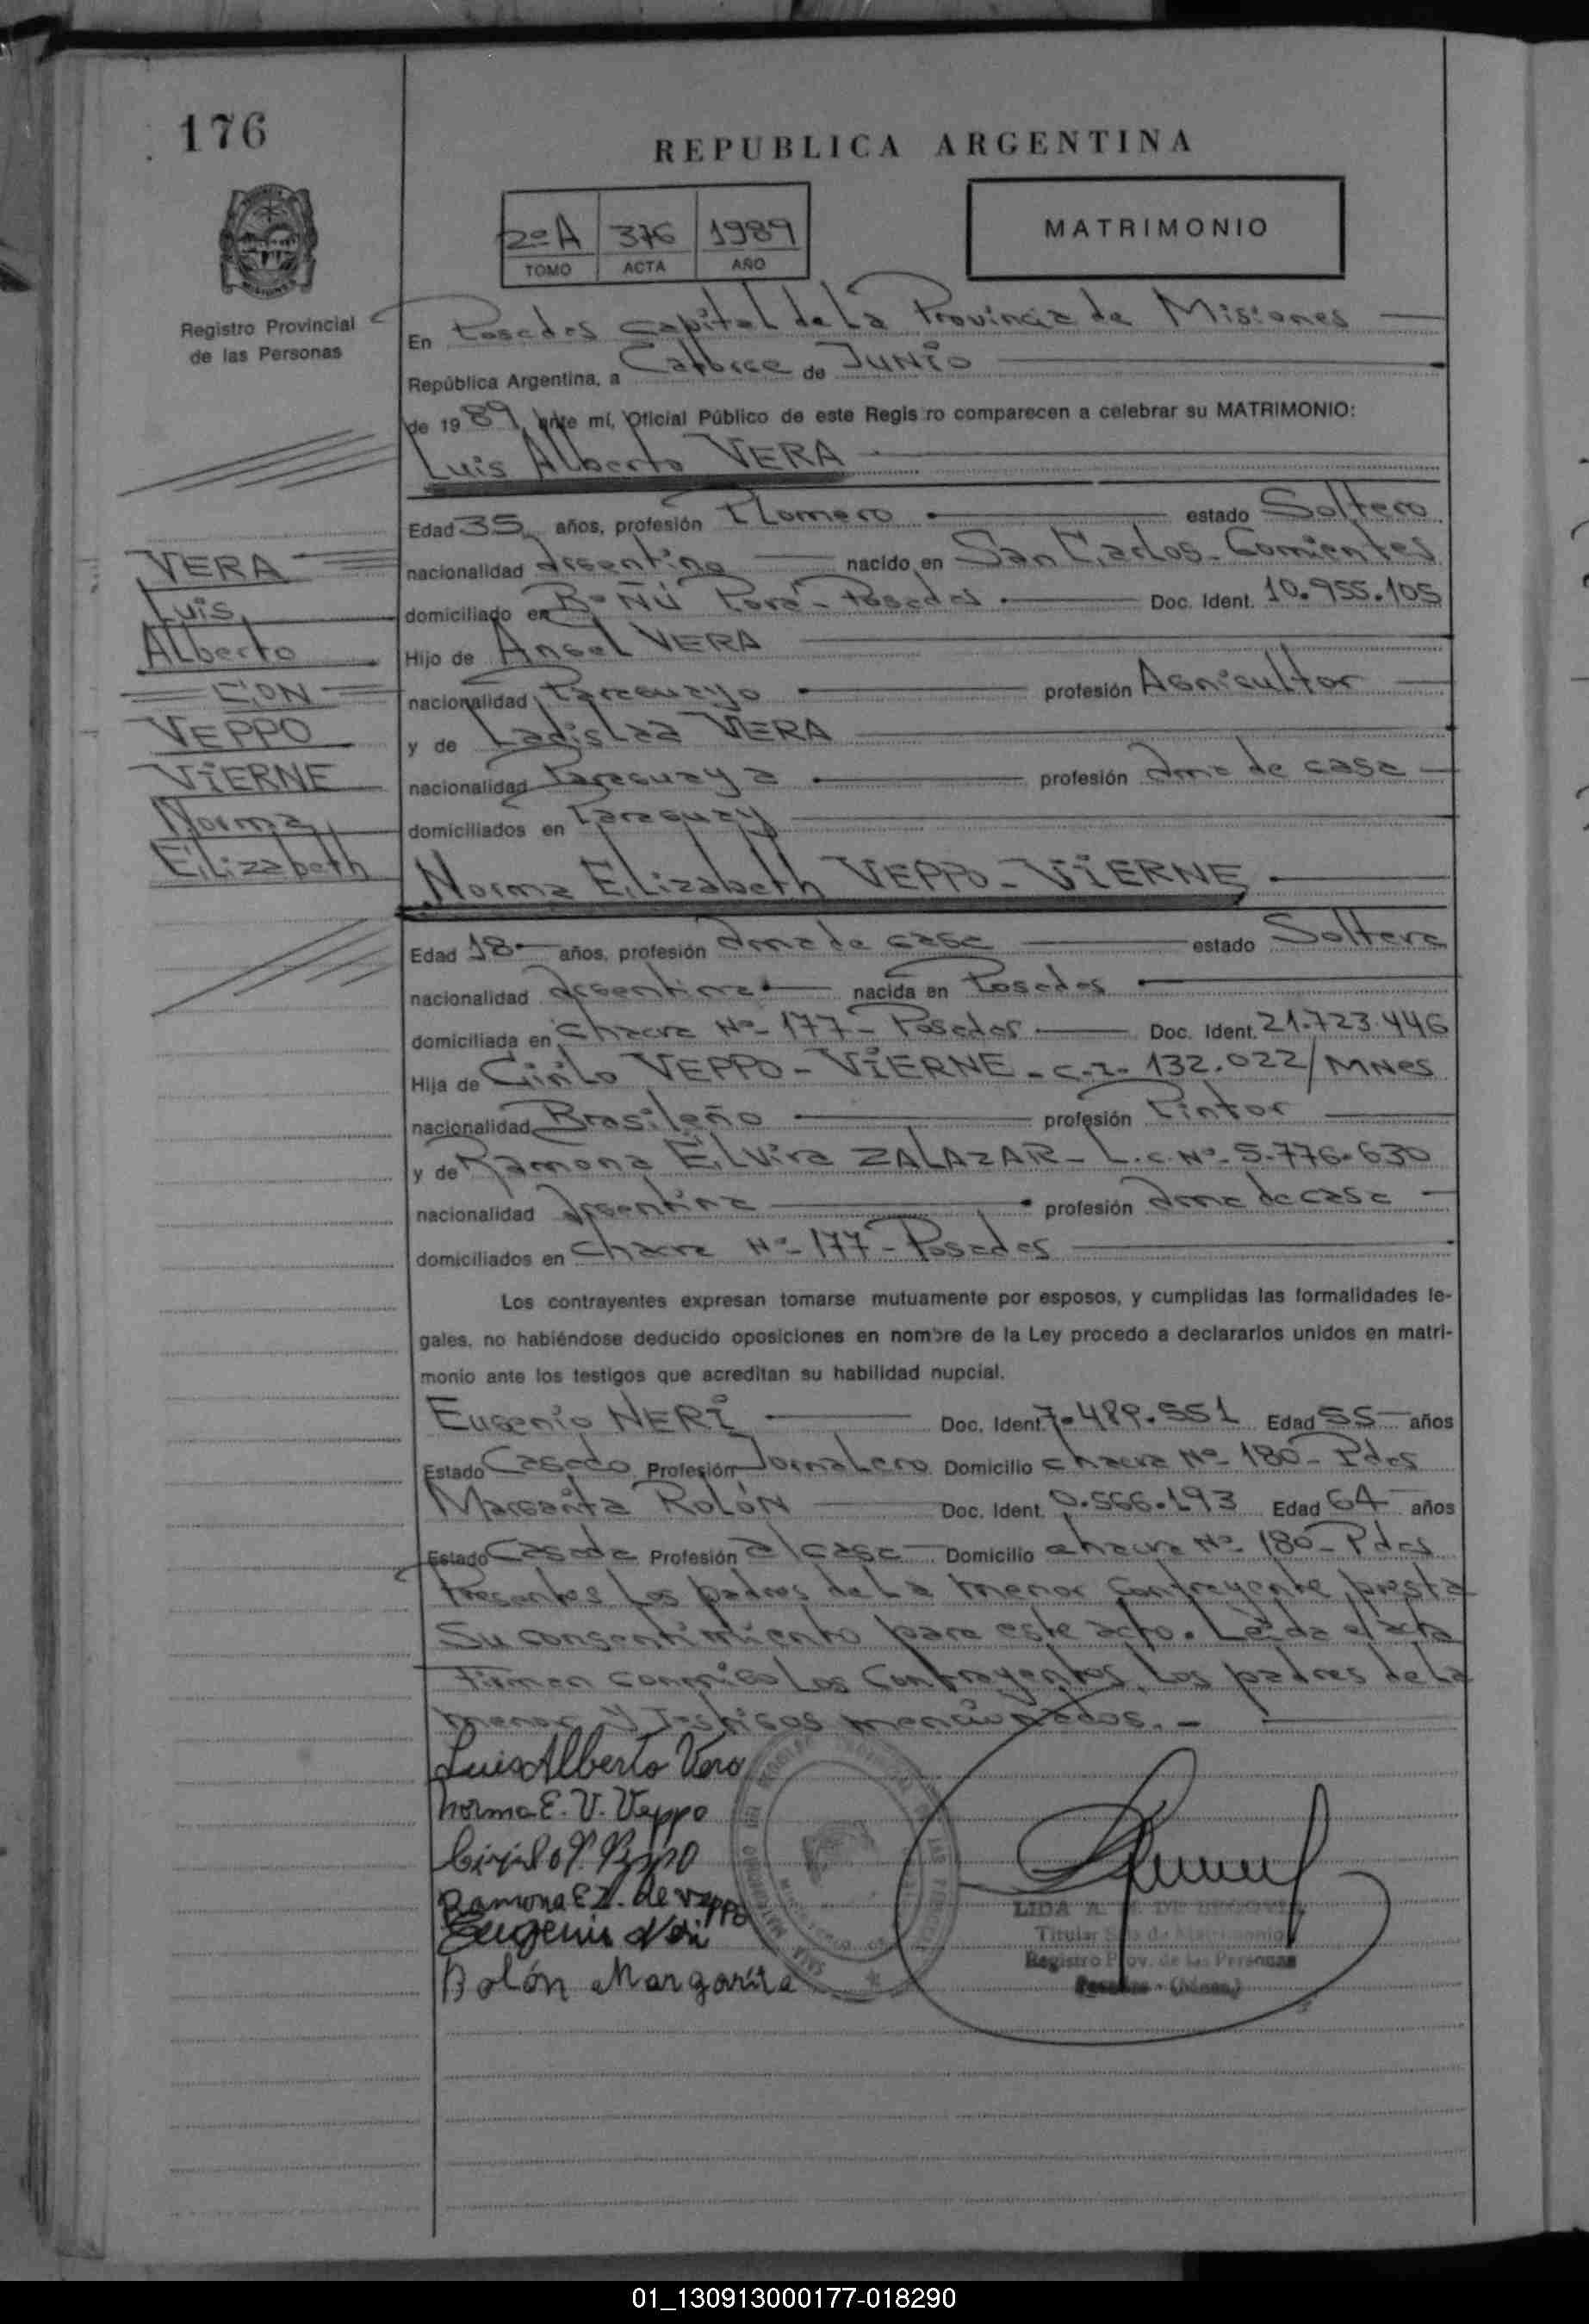 176
REPUBLICA ARGENTINA
2ºA 376 1989
TOMO ACTA AÑO
MATRIMONIO
Registro Provincial
de las Personas
En Posadas Capital de La Provincia de Misiones
República Argentina, a Catorce de JUNIO
de 1989, ante mí, Oficial Público de este Registro comparecen a celebrar su MATRIMONIO:
Luis Alberto VERA
Edad 35 años, profesión Plomero estado Soltero
nacionalidad Argentina nacido en San Carlos - Corrientes
domiciliado en Bº Ñú Porá - Posadas Doc. Ident. 10.955.105
Hijo de Angel VERA
nacionalidad Paraguayo profesión Agricultor
y de Ladislaa VERA
nacionalidad Paraguaya profesión Ama de casa
domiciliados en Paraguay
Norma Elizabeth VEPPO - VIERNE
VERA
Luis
Alberto
CON
VEPPO
VIERNE
Norma
Elizabeth
Edad 18 años, profesión Ama de casa estado Soltera
nacionalidad Argentina nacida en Posadas
domiciliada en Chacra Nº - 177 - Posadas Doc. Ident. 21.723.446
Hija de Cirilo VEPPO - VIERNE - C.I. 132.022/MNes
nacionalidad Brasileño profesión Pintor
y de Ramona Elvira ZALAZAR - L.C. Nº - 5.776.630
nacionalidad Argentina profesión Ama de casa
domiciliados en Chacra Nº - 177 - Posadas
Los contrayentes expresan tomarse mutuamente por esposos, y cumplidas las formalidades le-
gales, no habiéndose deducido oposiciones en nombre de la Ley procedo a declararlos unidos en matri-
monio ante los testigos que acreditan su habilidad nupcial.
Eugenio NERI Doc. Ident. 7.489.551 Edad 55 años
Estado Casado Profesión Jornalero Domicilio Chacra Nº - 180 - Pdas
Margarita ROLÓN Doc. Ident. 0.566.193 Edad 64 años
Estado Casada Profesión a/casa Domicilio chacra Nº - 180 - Pdas
Presentes Los padres de La menor Contrayente presta
Su consentimiento para este acto. Leida el acta
Firman conmigo Los Contrayentes, Los padres de La
menor y Testigos mencionados. -
Luis Alberto Vera
Norma E. V. Veppo
Cirilo V. Veppo
Ramona E Z. de Veppo
Eugenio Neri
Rolón Margarita
LIDA A. DE
Titular Sala de Matrimonio
Registro Prov. de las Personas
Posadas - (Mnes.)
01_130913000177-018290